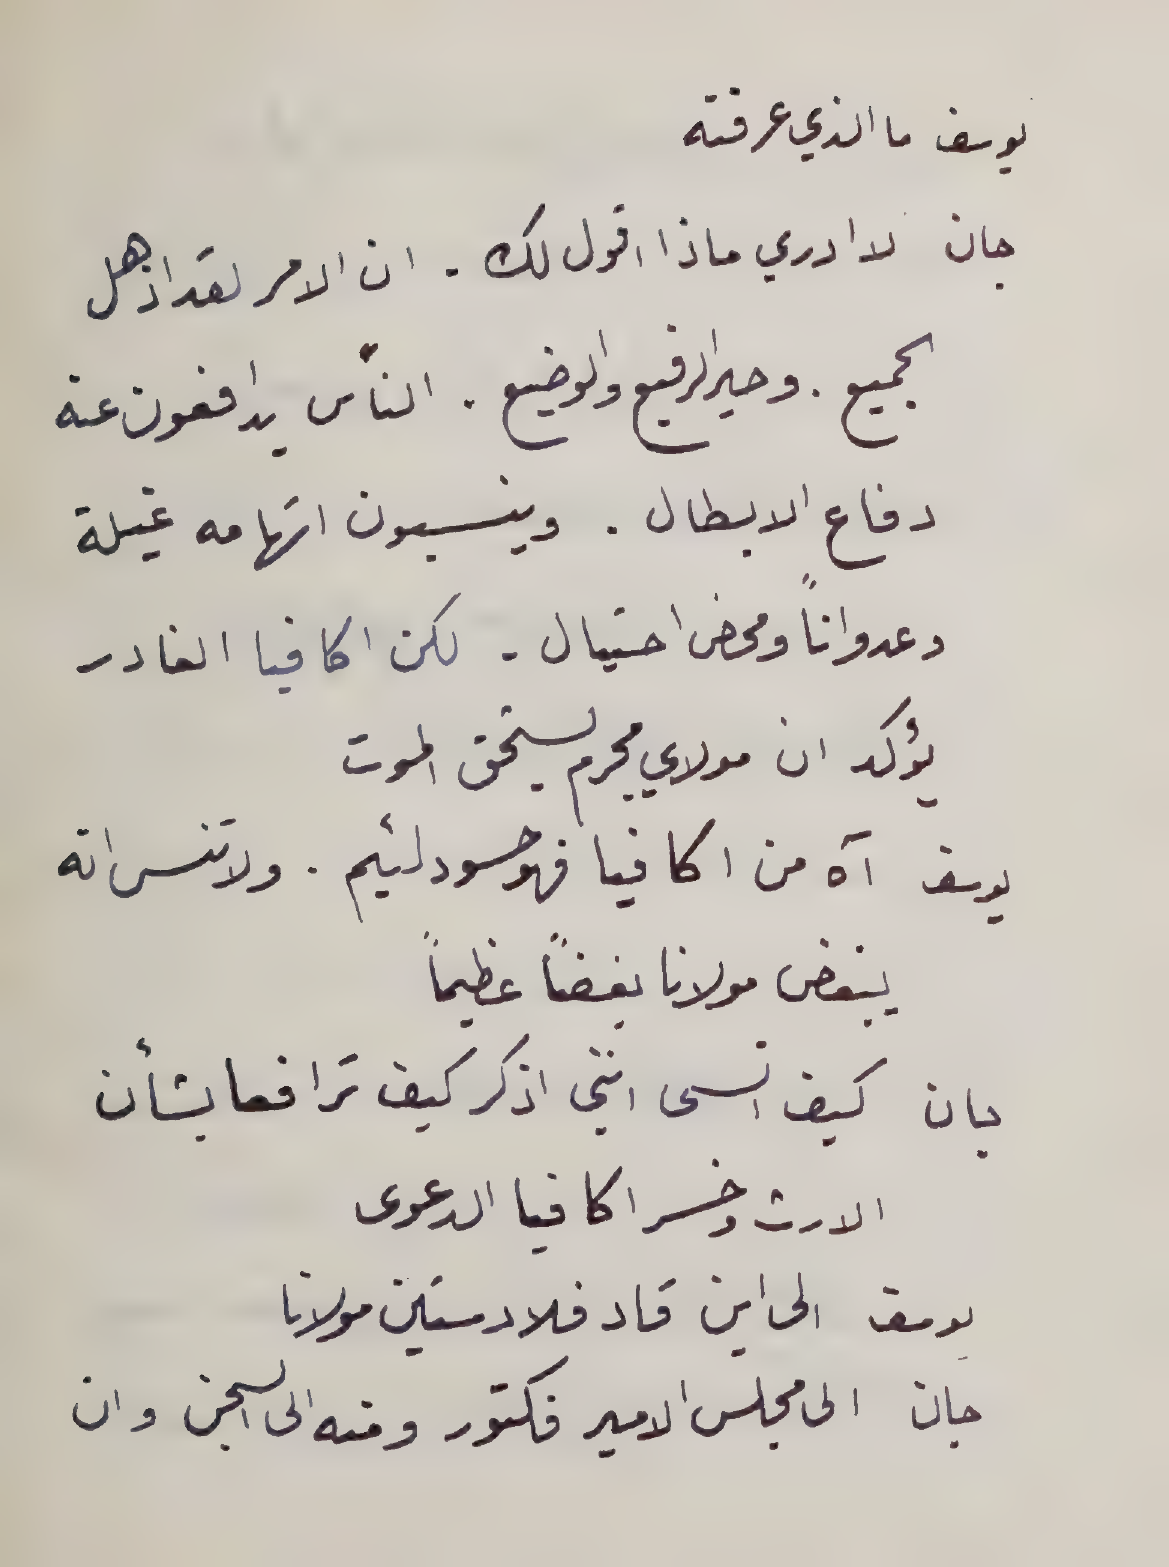 يوسف ما الذي عرفته
جان لا ادري ماذا اقول لك - ان الامر لقد اذهل
الجميع . وحير الرفيع والوضيع . الناس يدافعون عنه
دفاع الابطال . وينسبون اتهامه غيلة
وعدواناً ومحض احتيال - لكن اكافيا الغادر
يؤكد ان مولاي مجرم يستحق الموت
يوسف آه من اكافيا فهو حسود لئيم . ولا تنس انه
يبغض مولانا بغضاً عظيماً
جان كيف انسى انني اذكر كيف ترافعا بشأن
الارث وخسر اكافيا الدعوى
يوسف الى اين قاد فلادستين مولانا
جان الى مجلس الامير فكتور ومنه الى السجن وان